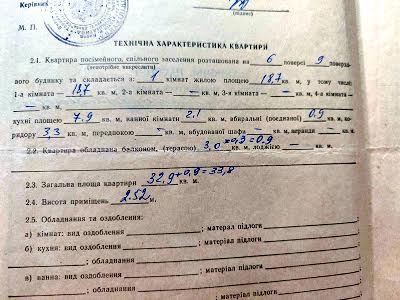 Керівник
(підпис)
М. П.
ТЕХНІЧНА ХАРАКТЕРИСТИКА КВАРТИРИ
2.1. Квартира посімейного, спільного заселення розташована на 6 поверсі 9 поверхо-
(непотрібне викреслити)
вого будинку та складається з: 1 кімнат жилою площею 18,7 кв. м, у тому числі:
1-а кімната — 18,7 кв. м, 2-а кімната — — кв. м, 3-я кімната — — кв. м, 4-а кімната —
— кв. м.
кухні площею 7,9 кв. м, ванної кімнати 2.1 кв. м, вбиральні (поєднаної) 0.9 кв. м, ко-
ридору 3.3 кв. м, передпокою — кв. м, вбудованої шафи — кв. м, веранди — кв. м.
2.2. Квартира обладнана балконом, (терасою) 3,0×0,3=0.9 кв. м, лоджією — кв. м.
2.3. Загальна площа квартири 32,9+0,9=33,8 кв. м.
2.4. Висота приміщень 2.52 м.
2.5. Обладнання та оздоблення:
а) кімнат: вид оздоблення ; матеріал підлоги
б) кухня: вид оздоблення ; матеріал підлоги
обладнання
в) ванна: вид оздоблення ; матеріал підлоги
обладнання